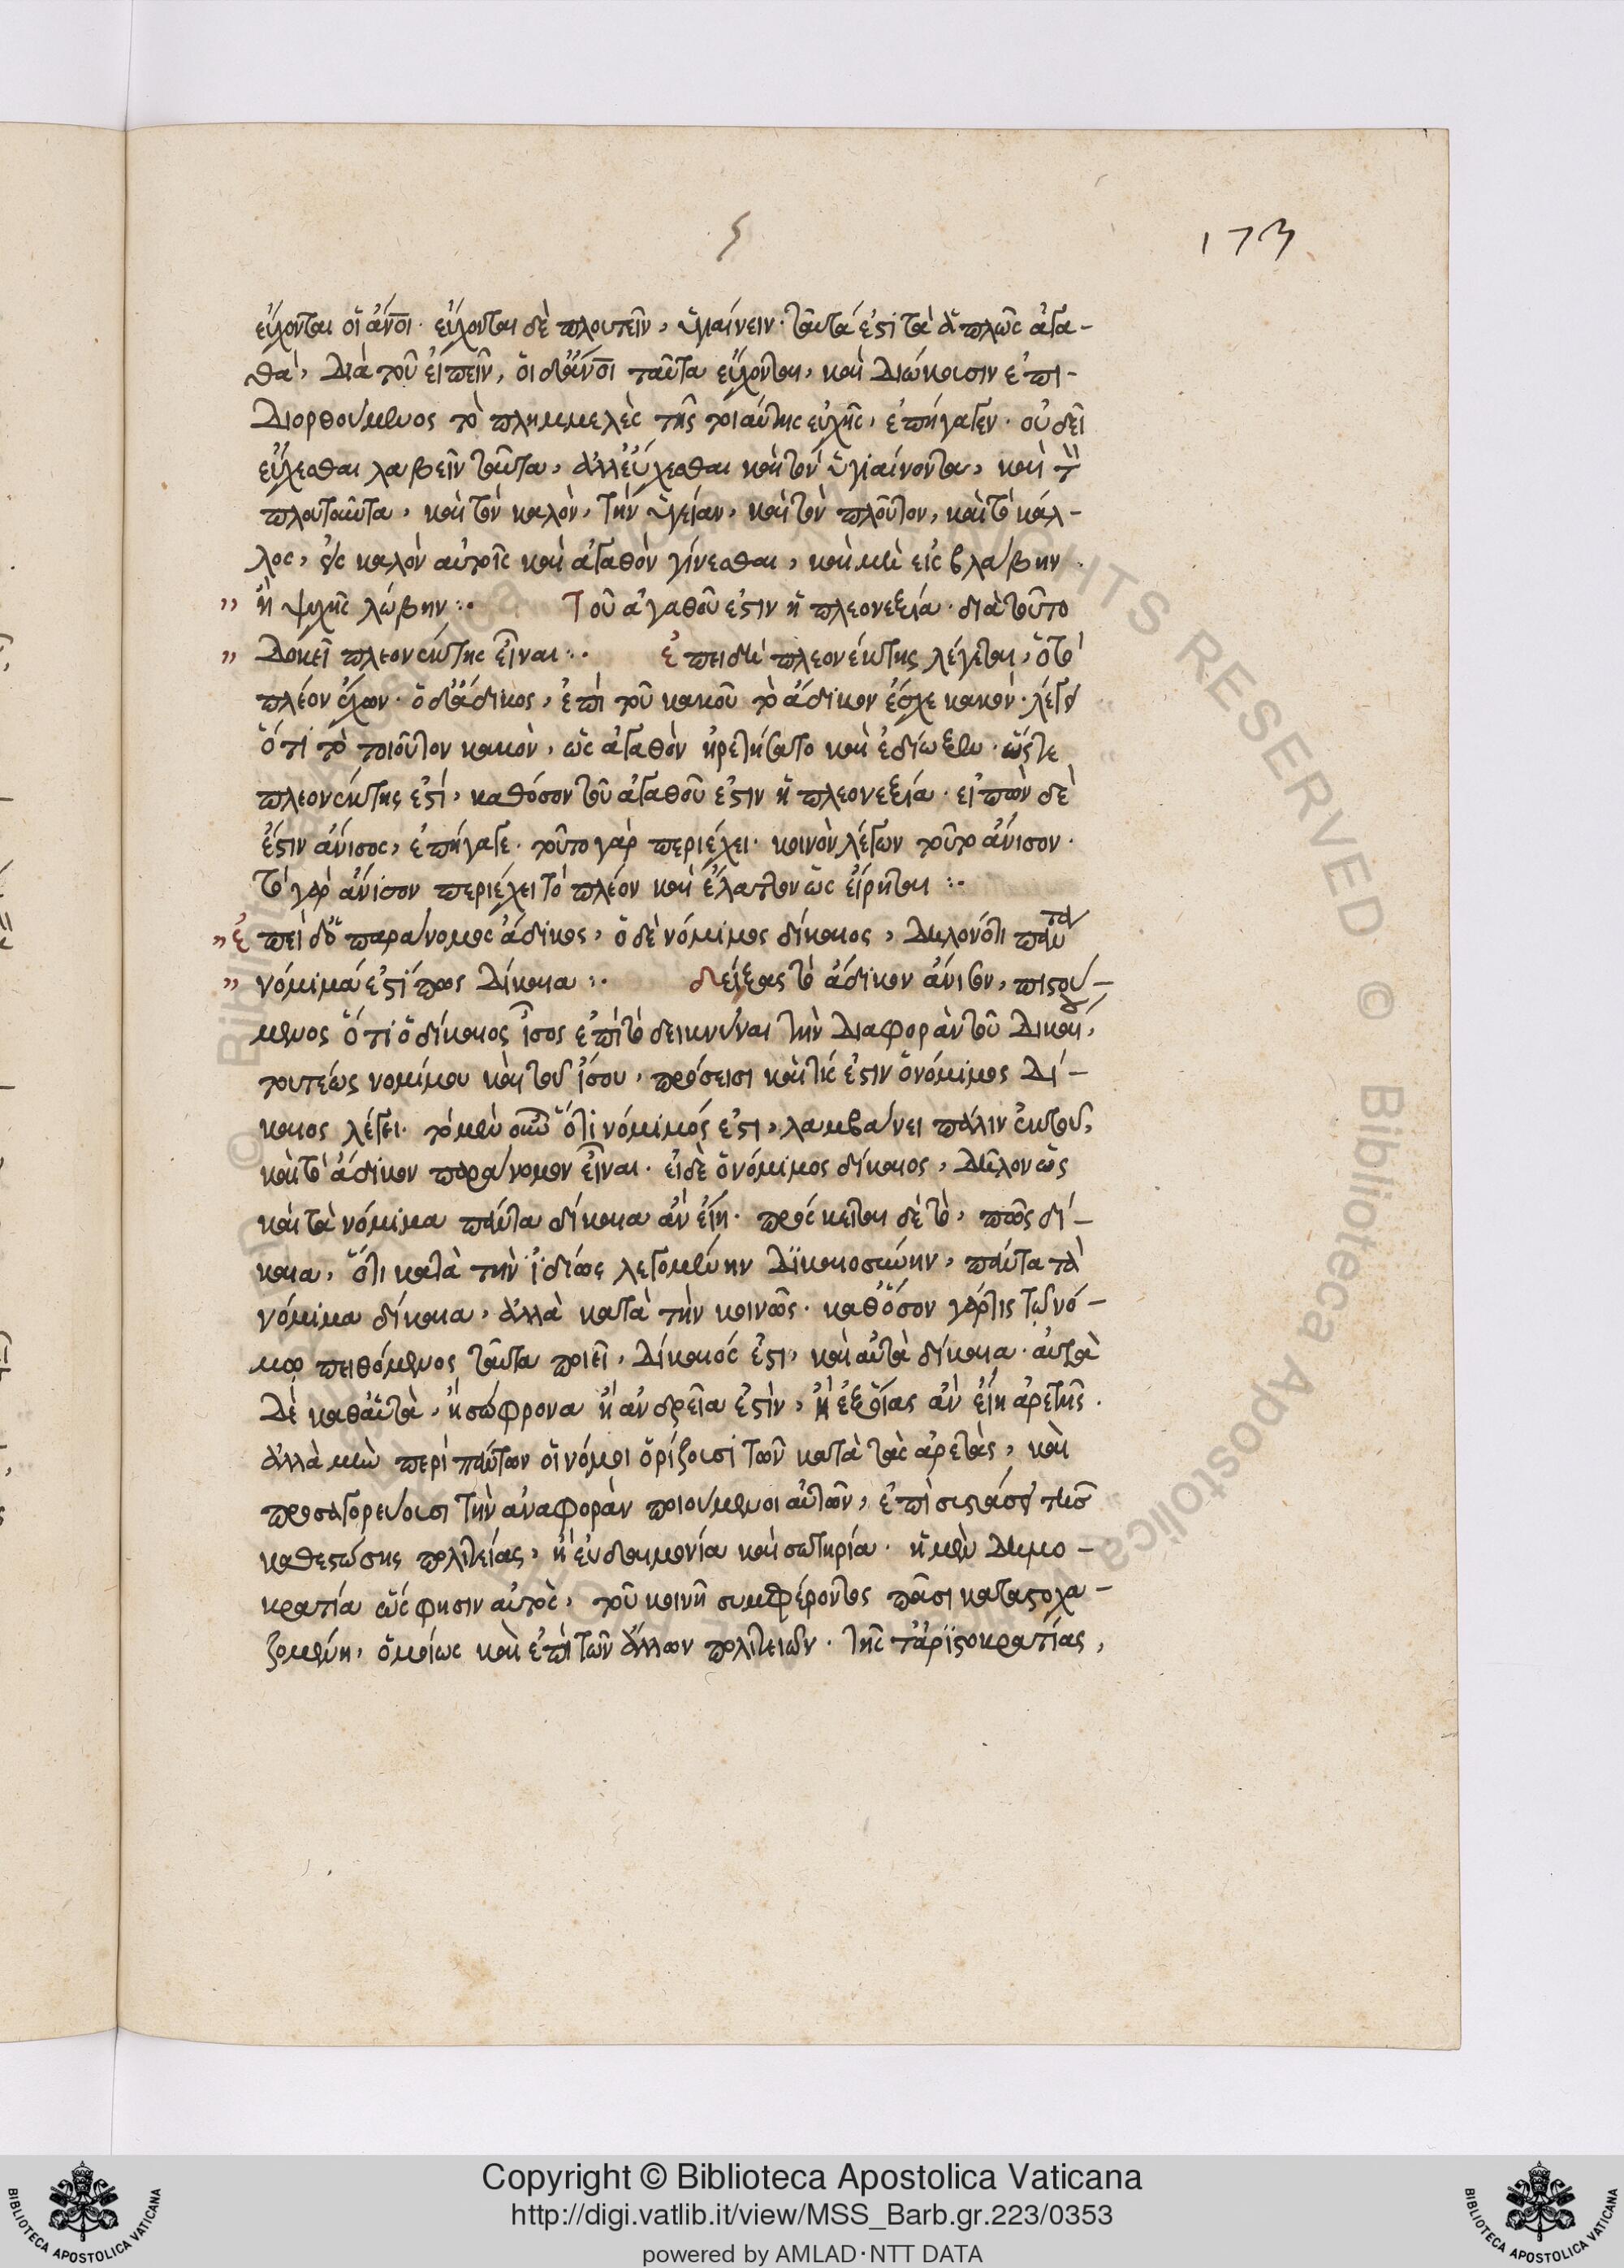 ς
173
εὔχονται οἱ ἄνοι· εὔχονται δὲ πλουτεῖν, ὑγιαίνειν· ταῦτά ἐστι τὰ ἁπλῶς ἀγα-
θά, διὰ τοῦ εἰπεῖν, οἱ δ' ἄνοι ταῦτα εὔχονται, καὶ διώκουσιν ἐπι-
διορθούμενος τὸ πλημμελὲς τῆς τοιαύτης εὐχῆς, ἐπήγαγεν· οὐ δεῖ
εὔχεσθαι λαβεῖν ταῦτα, ἀλλ' εὔχεσθαι καὶ τὸν ὑγιαίνοντα, καὶ τὸν
πλουτοῦντα, καὶ τὸν καλὸν, τὴν ὑγείαν, καὶ τὸν πλοῦτον, καὶ τὸ κάλ-
λος, εἰς καλὸν αὐτοῖς καὶ ἀγαθὸν γίνεσθαι, καὶ μὴ εἰς βλάβην
ἢ ψυχῆς λώβην :· Τοῦ ἀγαθοῦ ἐστιν ἡ πλεονεξία· διὰ τοῦτο
δοκεῖ πλεονέκτης εἶναι :· ἐπειδὴ πλεονέκτης λέγεται, ὁ τὸ
πλέον ἔχων· ὁ δ' ἄδικος, ἐπὶ τοῦ κακοῦ τὸ ἄδικον ἔσχε κακόν· λέγει
ὅτι τὸ τοιοῦτον κακὸν, ὡς ἀγαθὸν ᾑρετήσατο καὶ ἐδίωξεν· ὥστε
πλεονέκτης ἐστί, καθόσον τοῦ ἀγαθοῦ ἐστιν ἡ πλεονεξία· εἰπὼν δὲ
ἔστιν ἄνισος, ἐπήγαγε· τοῦτο γὰρ περιέχει· κοινὸν λέγων τοῦτο ἄνισον·
τὸ γὰρ ἄνισον περιέχει τὸ πλέον καὶ ἔλαττον ὡς εἴρηται :·
ἐπεὶ δ' ὁ παράνομος ἄδικος, ὁ δὲ νόμιμος δίκαιος, δηλονότι πάντα
νόμιμά ἐστί πως δίκαια :· δείξας τὸ ἄδικον ἄνισον, πιστού-
μενος ὅτι ὁ δίκαιος ἴσος ἐπὶ τὸ δεικνύναι τὴν διαφορὰν τοῦ δικαίου,
τουτέως νομίμου καὶ τοῦ ἴσου, πρόσεισι καὶ τίς ἐστιν ὁ νόμιμος δί-
καιος λέγει· τὸ μὲν οὖν ὅτι νόμιμός ἐστι, λαμβάνει πάλιν ἐκ τοῦ,
καὶ τὸ ἄδικον παράνομον εἶναι· εἰ δὲ ὁ νόμιμος δίκαιος, δῆλον ὡς
καὶ τὰ νόμιμα πάντα δίκαια ἂν εἴη· πρόσκειται δὲ τὸ, πῶς δί-
καια, ὅτι κατὰ τὴν ἰδίως λεγομένην δικαιοσύνην, πάντα τὰ
νόμιμα δίκαια, ἀλλὰ κατὰ τὴν κοινῶς· καθ' ὅσον γάρ τις τῷ νό-
μῳ πειθόμενος ταῦτα ποιεῖ, δίκαιός ἐστι, καὶ αὐτὰ δίκαια· αὐτὰ
δὲ καθ' αὑτὰ, ἢ σώφρονα ἢ ἀνδρεῖα ἐστὶν, ἢ ἐξ οἵας ἂν εἴη ἀρετῆς·
ἀλλὰ μὴν περὶ πάντων οἱ νόμοι ὁρίζουσι τῶν κατὰ τὰς ἀρετὰς, καὶ
προσαγορεύουσι τὴν ἀναφορὰν ποιούμενοι αὐτῶν, ἐπὶ συστάσει τῆς
καθεστώσης πολιτείας, ἢ εὐδαιμονία καὶ σωτηρία· ἡ μὲν δημο-
κρατία ὥς φησιν αὐτὸς, τοῦ κοινῇ συμφέροντος πᾶσι καταστοχα-
ζομένη, ὁμοίως καὶ ἐπὶ τῶν ἄλλων πολιτειῶν· τῆς τ' ἀριστοκρατίας,
Copyright © Biblioteca Apostolica Vaticana
http://digi.vatlib.it/view/MSS_Barb.gr.223/0353
powered by AMLAD·NTT DATA